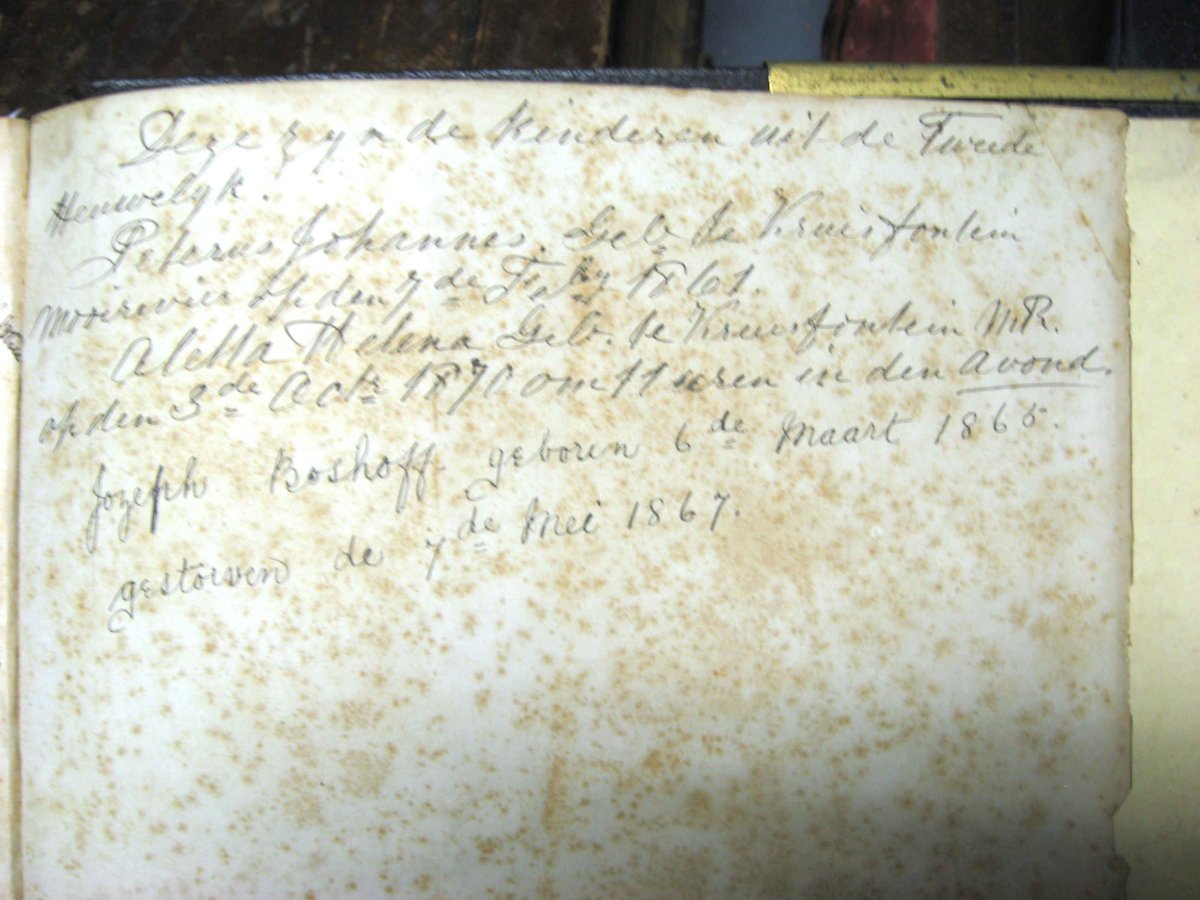 Deze zyn de Kinderen uit de Tweede
Heuwelyk.
Peterus Johannes. Geb. te Kruisfontein
Mooirevier op den 7de Feby 1861.
Aletta Helena Geb. te Kruisfontein MR.
op den 3de Octr 1871 om 11 uren in den avond.
Jozeph Boshoff. geboren 6de Maart 1865.
gestorven de 7de Mei 1867.